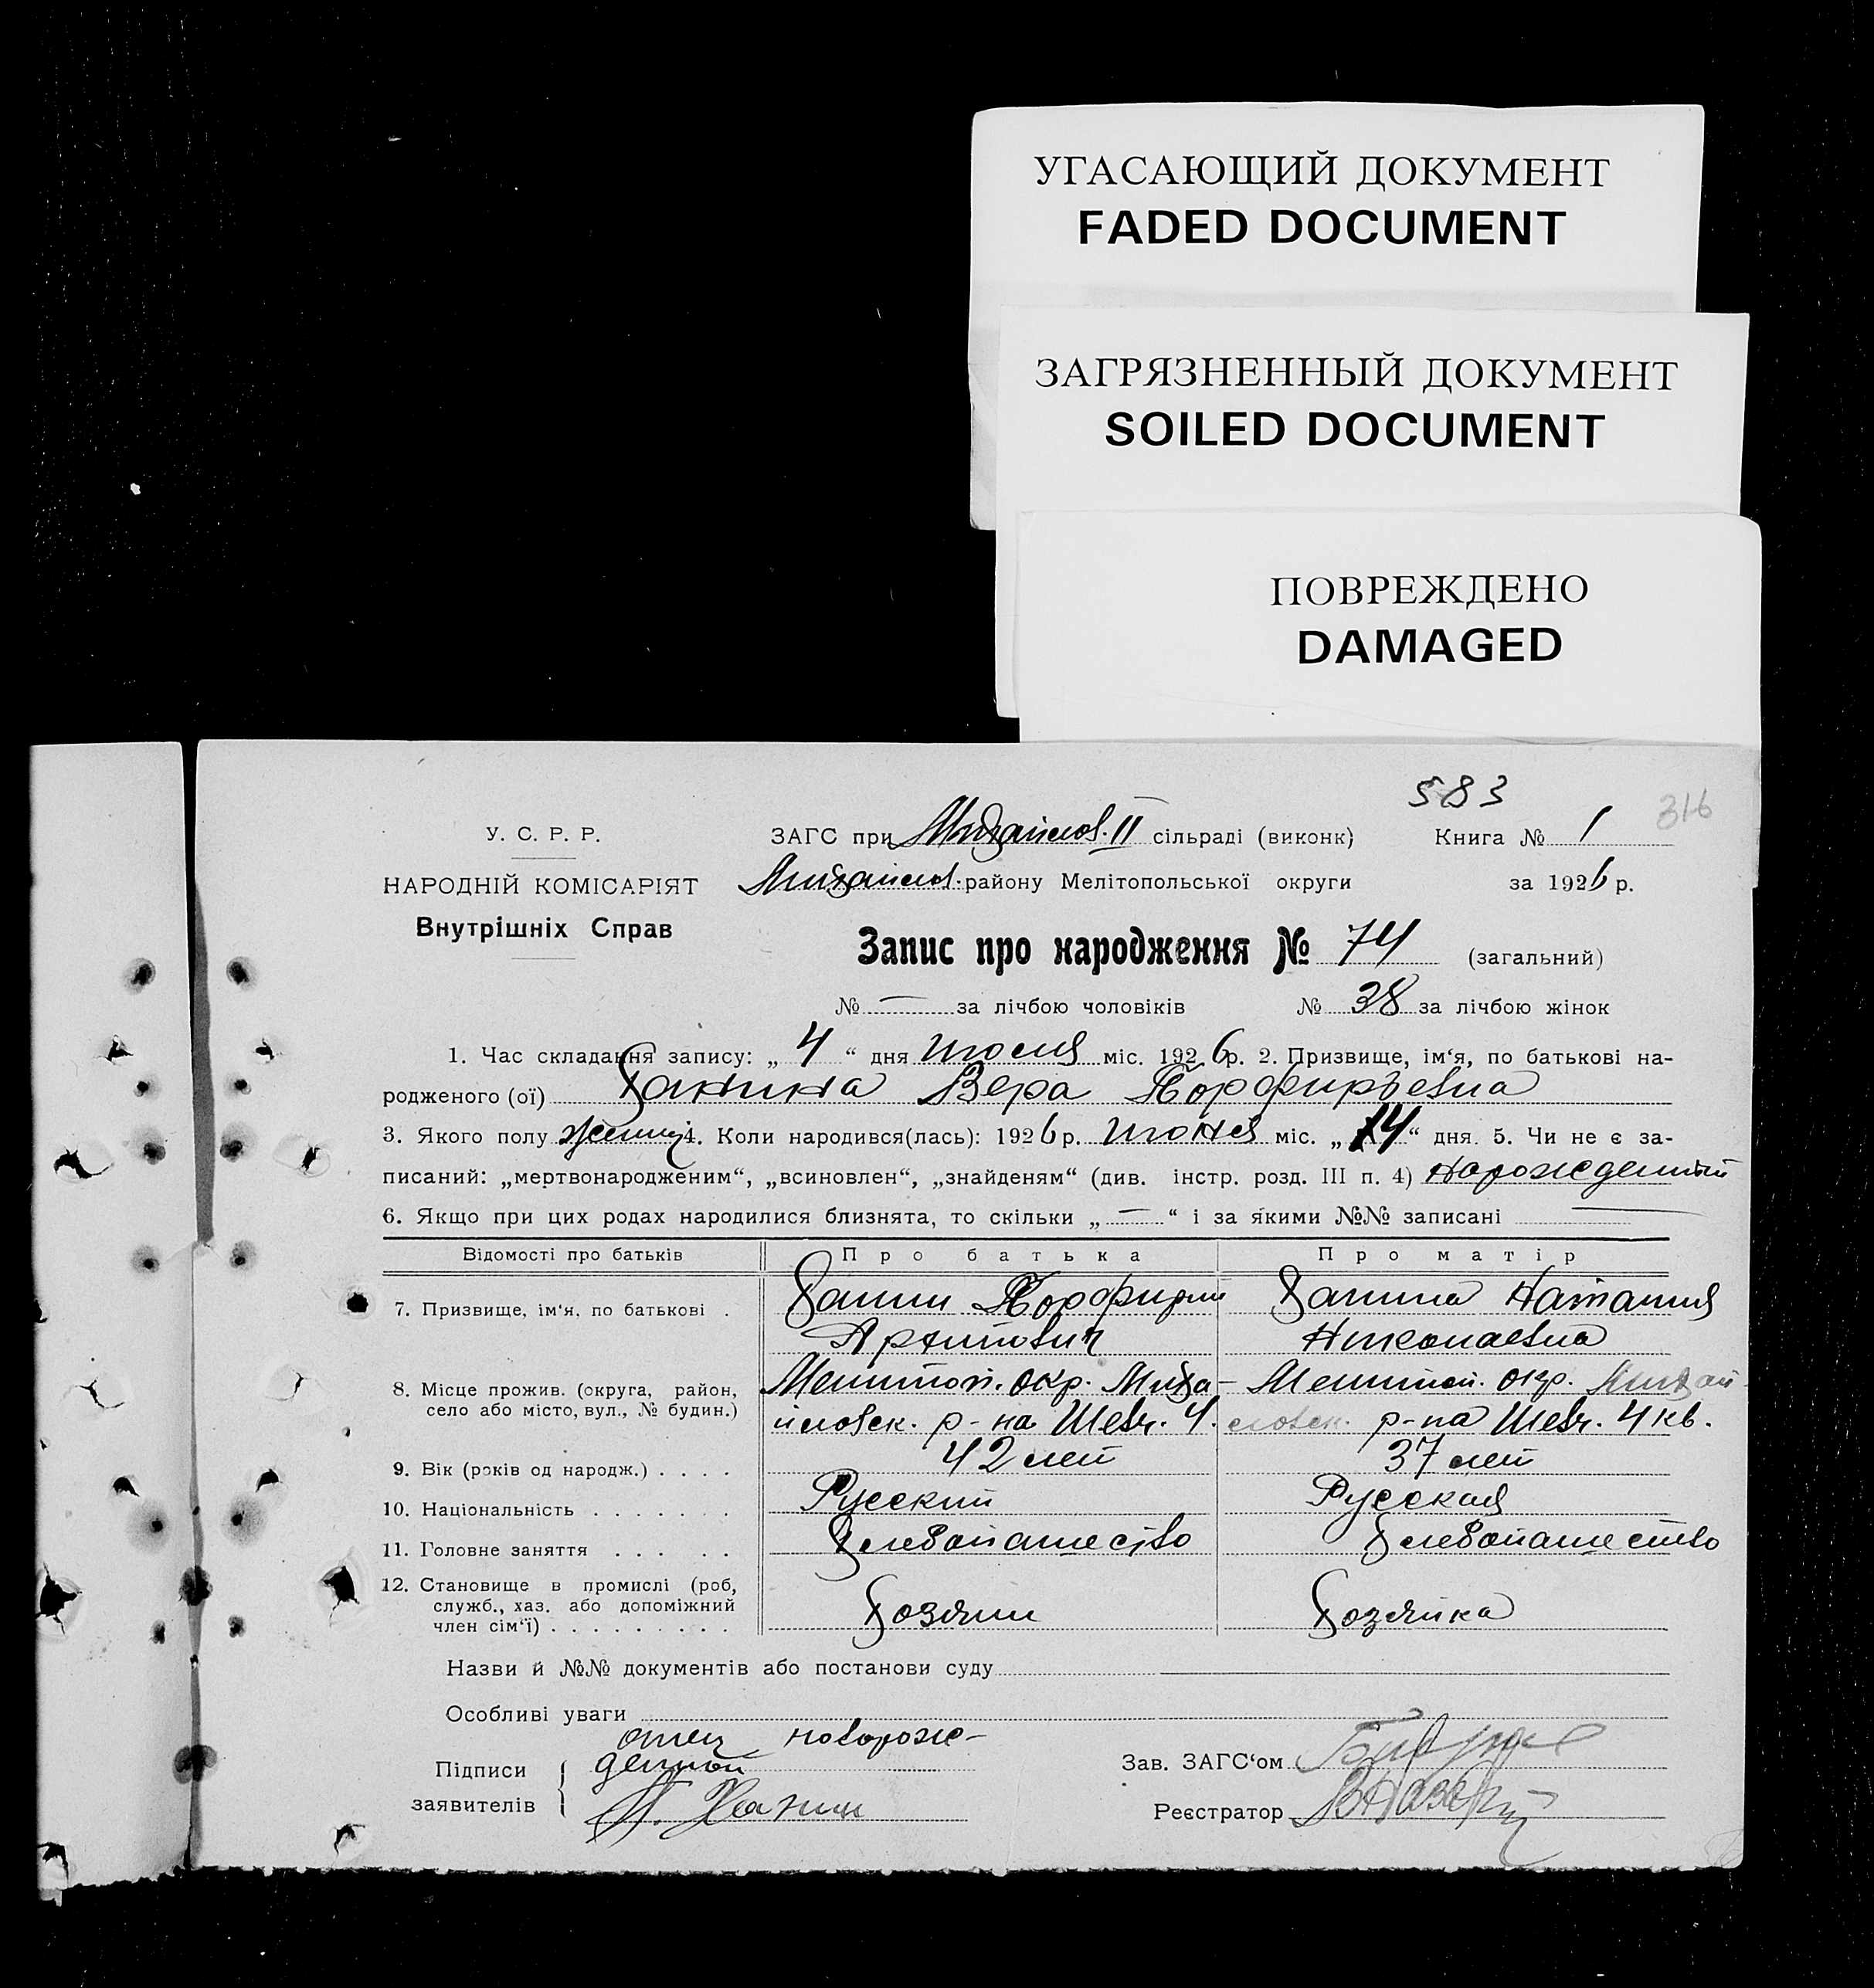 УГАСАЮЩИЙ ДОКУМЕНТ
FADED DOCUMENT
ЗАГРЯЗНЕННЫЙ ДОКУМЕНТ
SOILED DOCUMENT
ПОВРЕЖДЕНО
DAMAGED
583
316
У. С. Р. Р.
НАРОДНІЙ КОМІСАРІЯТ
Внутрішніх Справ
ЗАГС при Михайлов. II сільраді (виконк) Книга № 1
Михайлов. району Мелітопольської округи за 1926 р.
Запис про народження № 74 (загальний)
№ — за лічбою чоловіків № 38 за лічбою жінок
1. Час складання запису: „ 4 “ дня июля міс. 1926 р. 2. Призвище, ім‘я, по батькові на-
родженого (ої) Ханина Вера Порфирьевна
3. Якого полу 4. Коли народився(лась): 1926 р. июня міс. „ “ дня. 5. Чи не є за-
писаний: „мертвонародженим“, „всиновлен“, „знайденям“ (див. інстр. розд. III п. 4) нарожденный
6. Якщо при цих родах народилися близнята, то скільки „ — “ і за якими №№ записані —
Відомості про батьків Про батька Про матір
7. Призвище, ім‘я, по батькові . Ханин Порфирий Ханина Наталия
Архипович Николаевна
8. Місце прожив. (округа, район, село або місто, вул., № будин.) Мелитоп. окр. Миха- Мелитоп. окр. Михай-
йловск. р-на Шевч. 4. ловск. р-на Шевч. 4 кв.
9. Вік (років од народж.) . . . . 42 лет 37 лет
10. Національність . . . . . . . Русский Русская
11. Головне заняття . . . . . Хлебопашество Хлебопашество
12. Становище в промислі (роб, служб., хаз. або допоміжний член сім‘ї) . . . . . . . . . Хозяин Хозяйка
Назви й №№ документів або постанови суду
Особливі уваги
отец новорож-
Підписи денной
заявителів П. Ханин
Зав. ЗАГС‘ом
Реєстратор